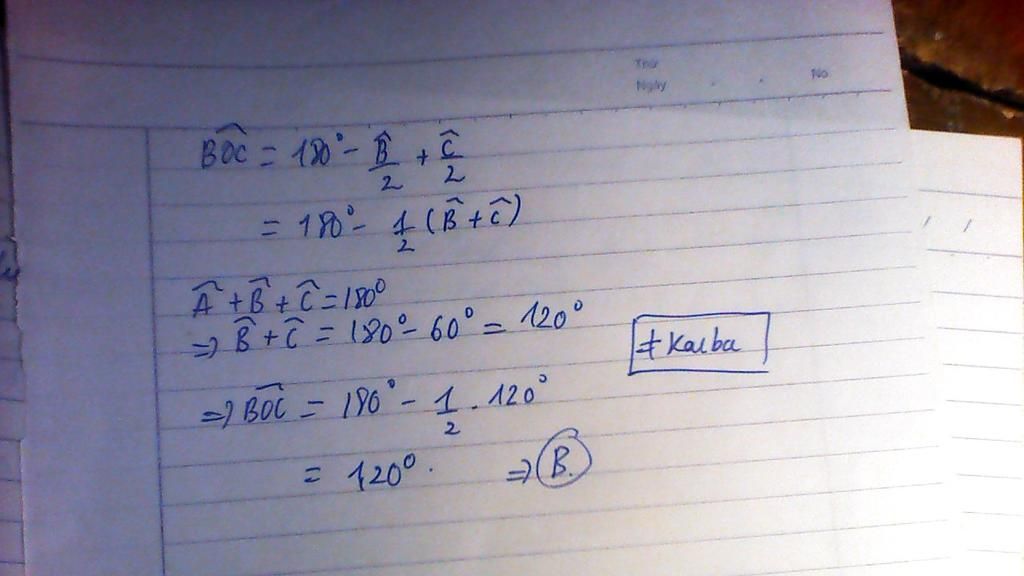 Thứ
Ngày . . No
BOC = 180° - B/2 + C/2
= 180° - 1/2 (B + C)
A + B + C = 180°
=> B + C = 180° - 60° = 120°
# Kalba
=> BOC = 180° - 1/2 . 120°
= 120° . => B.